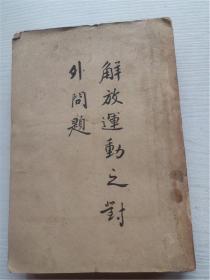 解放運動之對
外問題